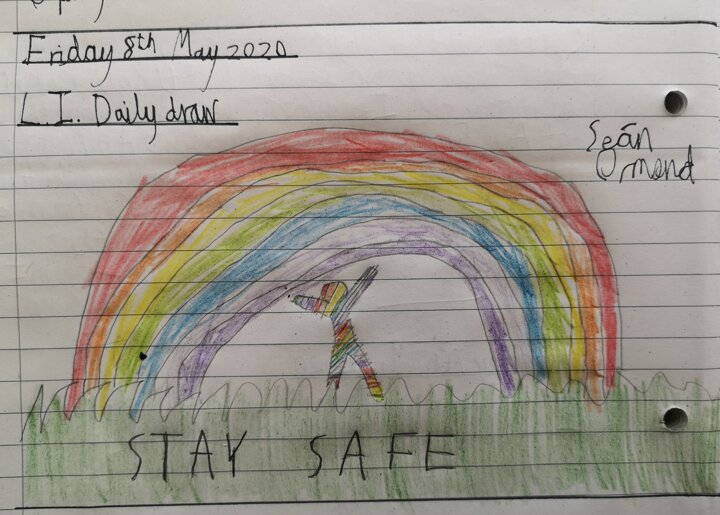 Friday 8th May 2020
L.I. Daily draw
Seán
Ormond
STAY SAFE